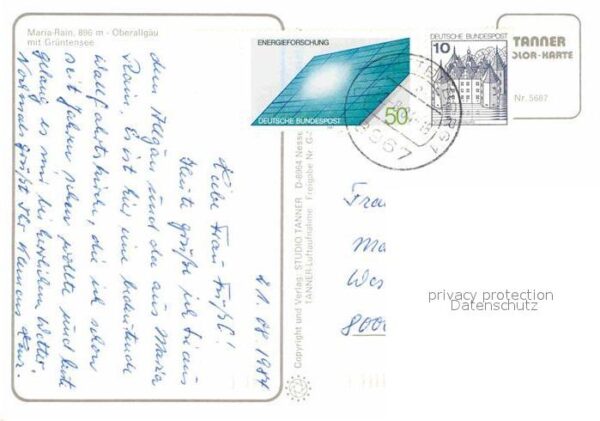 Maria-Rain, 896 m - Oberallgäu
mit Grüntensee
ENERGIEFORSCHUNG
DEUTSCHE BUNDESPOST
50
DEUTSCHE BUNDESPOST
10
TANNER
OLOR-KARTE
Nr. 5687
8967
Copyright und Verlag: STUDIO TANNER D-8964 Nesse
TANNER-Luftaufnahme Freigabe Nr. G
21.08.1984
Liebe Frau
Heute grüße ich Sie aus
dem Allgäu und da aus Maria
Rain. Es ist hier eine bedeutende
Wallfahrtskirche, die ich schon
seit Jahren sehen wollte und heute
gelang es mir bei herrlichem Wetter.
Nochmals grüßt Ihr Klemens
Frau
Ma
Wes
8000
privacy protection
Datenschutz